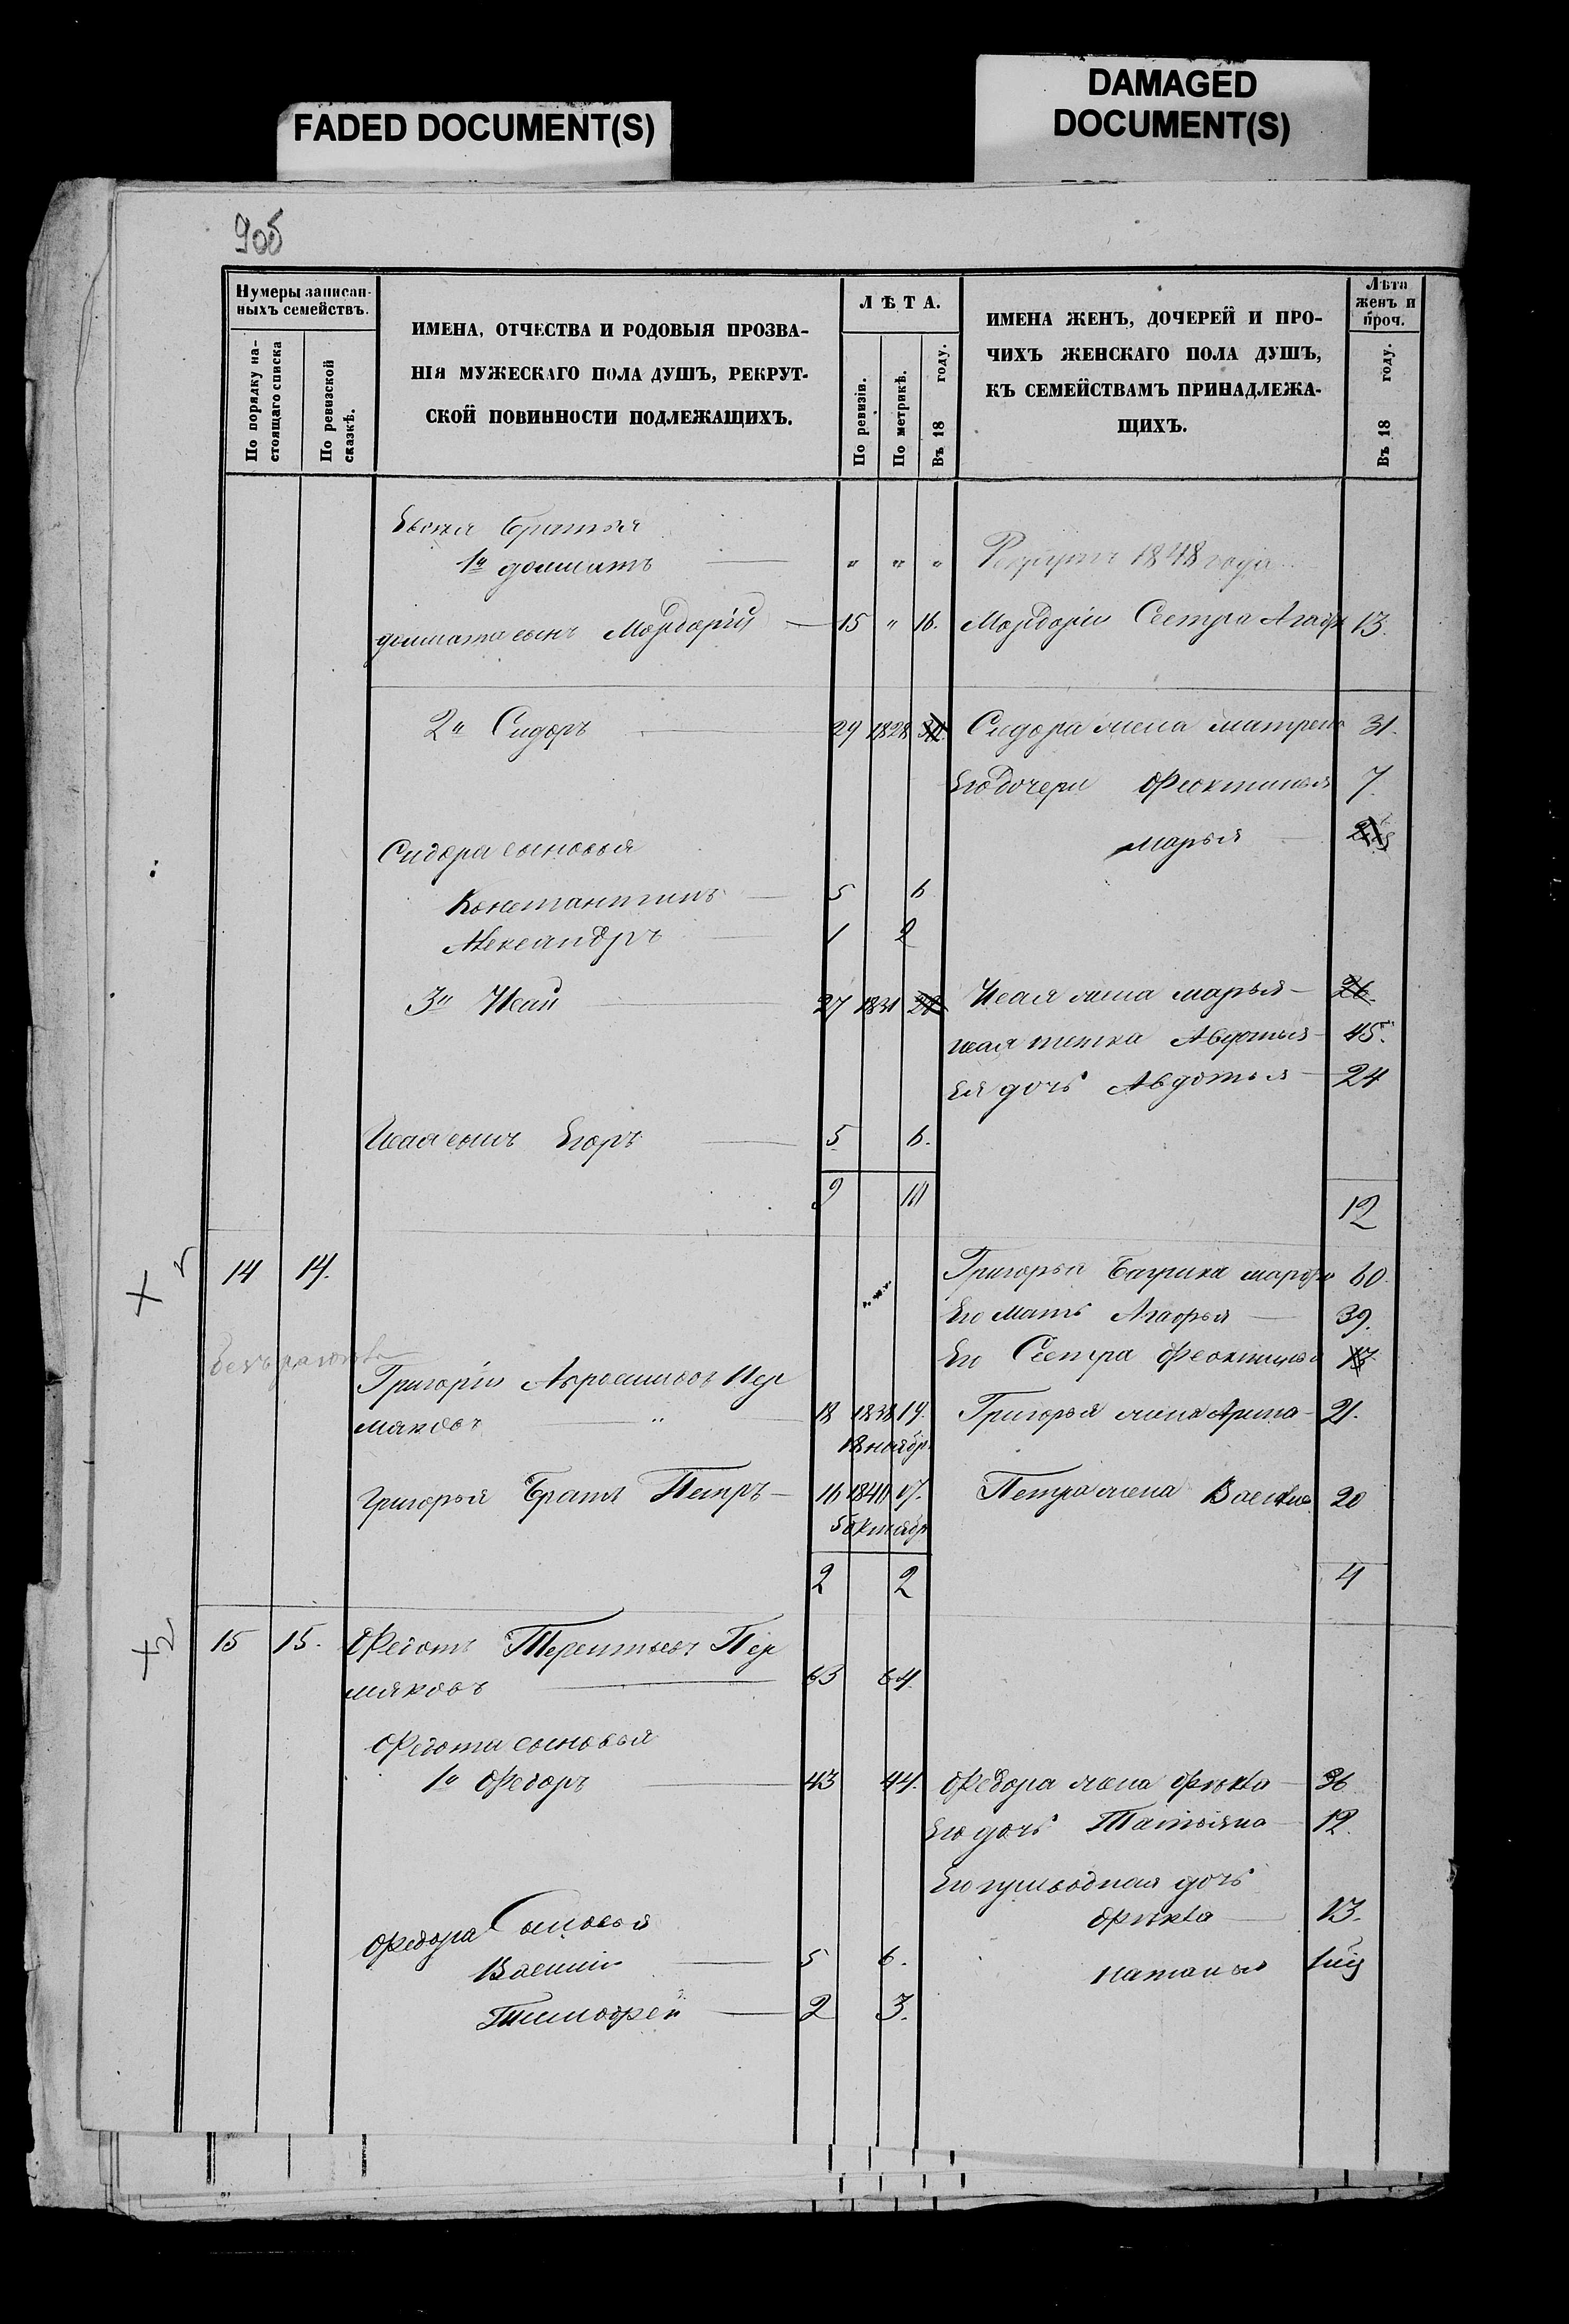 FADED DOCUMENT(S)
DAMAGED
DOCUMENT(S)
905
Нумеры записан-
ныхъ семействъ.
По порядку на-
стоящаго списка
По ревизской
сказкѣ.
ИМЕНА, ОТЧЕСТВА И РОДОВЫЯ ПРОЗВА-
НІЯ МУЖЕСКАГО ПОЛА ДУШЪ, РЕКРУТ-
СКОЙ ПОВИННОСТИ ПОДЛЕЖАЩИХЪ.
ЛѢТА.
По ревизіи.
По метрикѣ.
Въ 18 году.
ИМЕНА ЖЕНЪ, ДОЧЕРЕЙ И ПРО-
ЧИХЪ ЖЕНСКАГО ПОЛА ДУШЪ,
КЪ СЕМЕЙСТВАМЪ ПРИНАДЛЕЖА-
ЩИХЪ.
Лѣта
женъ и
проч.
Въ 18 году.
братья
1й " " " 1848 года
сынъ 15 " 16. Сестра 13.
2й Сидоръ 29 1828 Сидора жена Матрена 31.
Его дочери Феоктинья 7.
Сидора сыновья Марья
Константинъ 5 6
Александръ 1 2
3й Исай 27 1831 Исая жена Марья 26.
Исая тетка Авдотья 45.
Ея дочь Авдотья 24
Исая сынъ Егоръ 5. 6.
9 10 12
14 14. Григорья Бабушка Марфа 60.
Его мать Агафья 39.
Его Сестра Феоктинья
Григорій Пер
мяковъ " 18 1838 19. Григорья жена Арина 21.
18 ноябр.
Григорья Братъ Петръ 16 1840 17. Петра жена Васса 20
5 октябр
2 2 4
15 15. Федотъ Терентьевъ Пер
мяковъ 63 64.
Федота сыновья
1й Федоръ 43 44. Федора жена Фекла 36
Его дочь Татьяна 12.
Его приводная дочь
Фекла 13.
Федора Сыновья
Василій 5 6. Наталья
Тимофей 2 3.